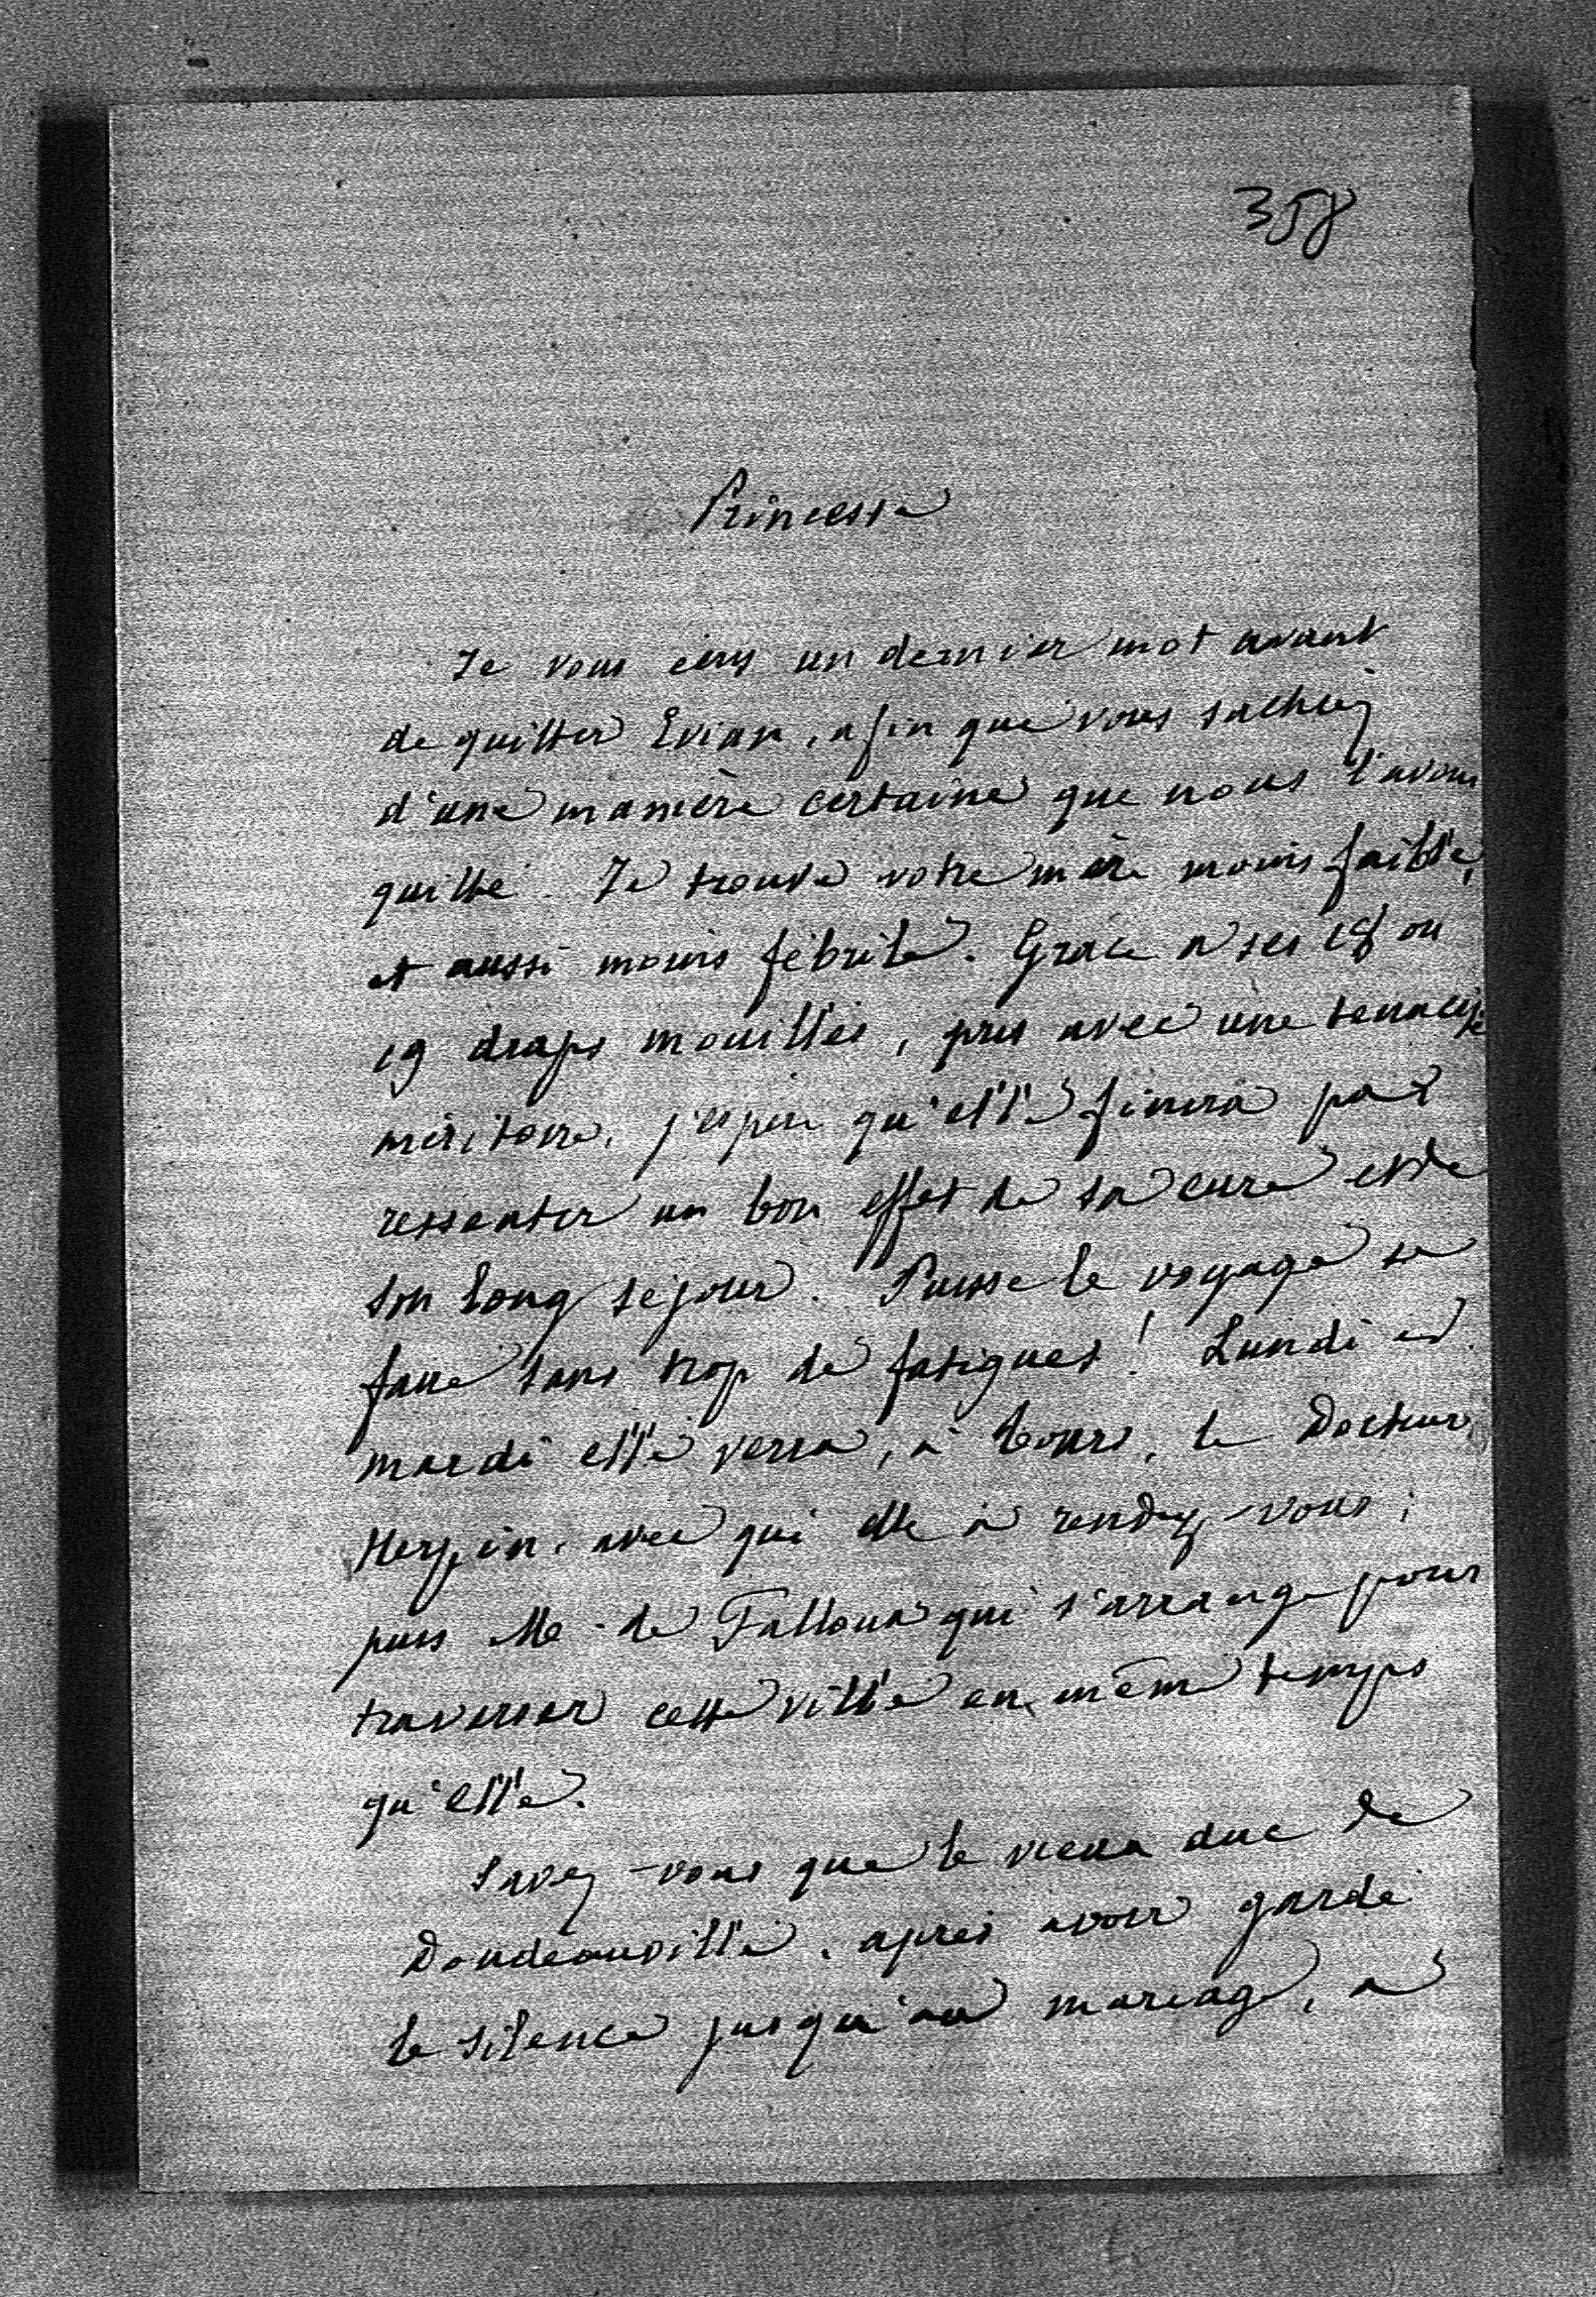 358
Princesse
Je vous écris un dernier mot avant
de quitter Evian, afin que vous sachiez
d'une manière certaine que nous l'avons
quitté. Je trouve votre mère moins faible,
et aussi moins fébrile. Grâce à ses 18 ou
19 draps mouillés, pris avec une tenacité
méritoire, j'espère qu'elle finira par
ressentir un bon effet de sa cure et de
son long séjour. Puisse le voyage se
faire sans trop de fatigues! Lundi et
mardi elle verra, à Tours, le Docteur
Herpin, avec qui elle a rendez-vous;
puis Mr de Falloux qui s'arrange pour
traverser cette ville en même temps
qu'elle.
Savez-vous que le vieux duc de
Doudeauville, après avoir gardé
le silence jusqu'au mariage, a